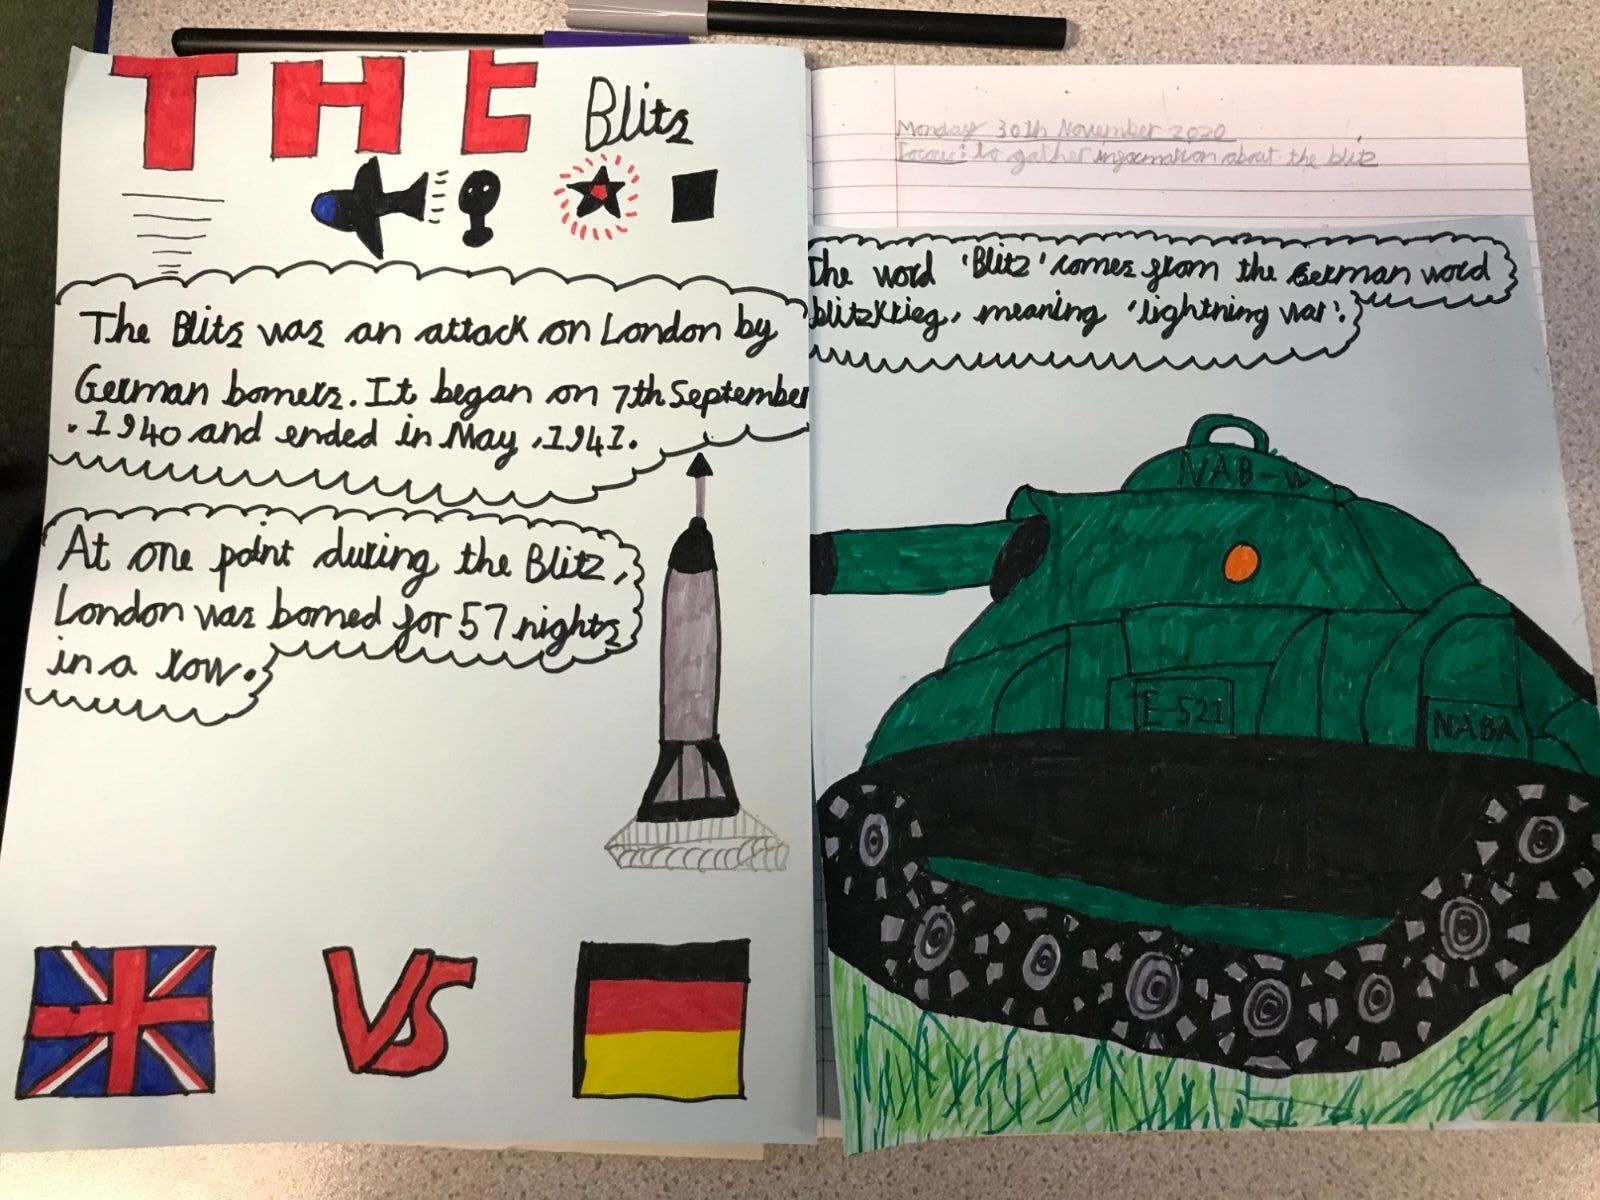 THE Blitz
The Blitz was an attack on London by
German bomers. It began on 7th September
.1940 and ended in May ,1941.
At one point during the Blitz,
London was bomed for 57 nights
in a row.
VS
Monday 30th November 2020
Focus: to gather information about the blitz
The word 'Blitz' comes from the German word
blitzkrieg, meaning 'lightning war'.
NAB-W
E-521
NABA